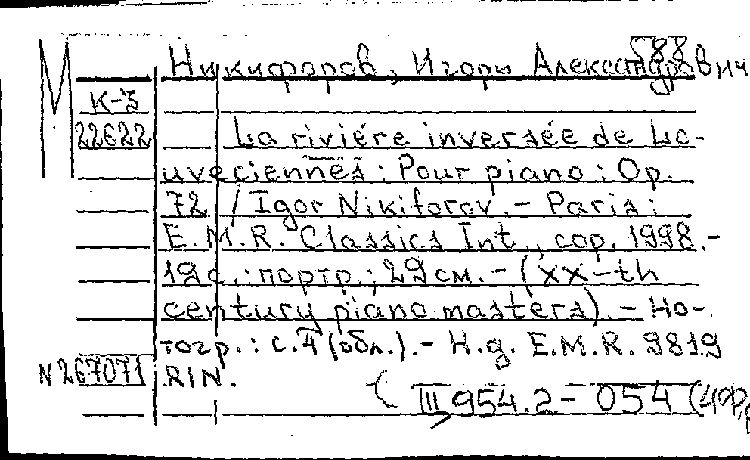 588
М Никифоров, Игорь Александрович
К-3
22622 La riviére inversée de Lo-
uveciennes : Pour piano : Op.
72 / Igor Nikiforov. - Paris :
E.M.R. Classics Int., cop. 1998. -
19 с. : портр. ; 29 см. - (XX-th
century piano masters). - Но-
тогр. : с. 4 (обл.). - Н.д. E.M.R. 9819
N 267071 RIN.
III 954.2 - 054